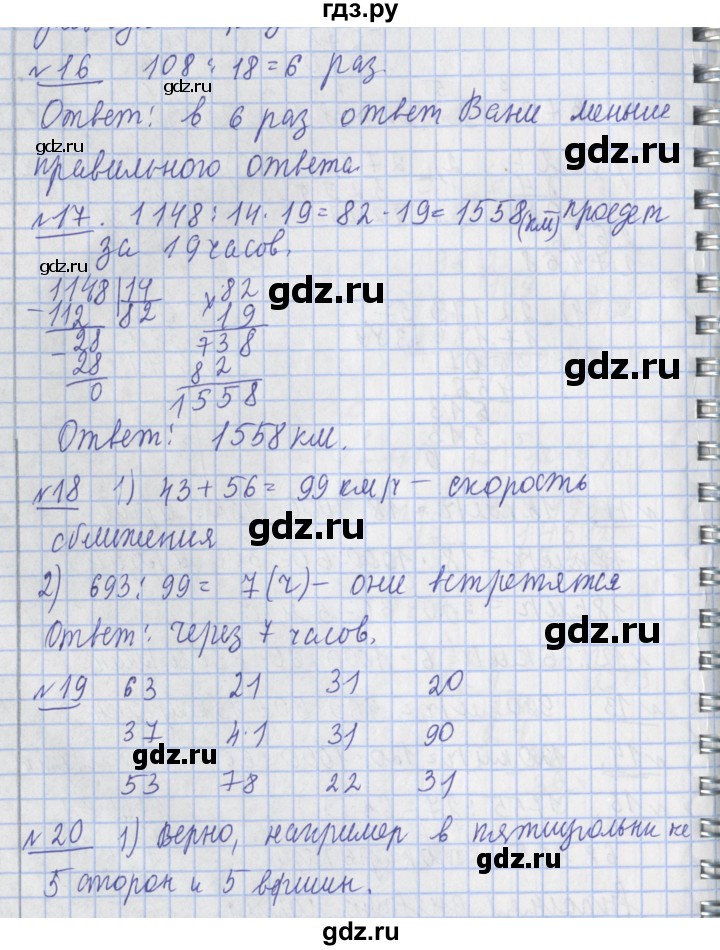 гдз.ру
№16 108 : 18 = 6 раз
Ответ: в 6 раз ответ Вани меньше
правильного ответа
№17. 1148 : 14 · 19 = 82 · 19 = 1558 (км) проедет
за 19 часов.
1148 | 14 × 82
- 112 82 19
- 28 738
28 82
0 1558
Ответ: 1558 км.
№18 1) 43 + 56 = 99 км/ч – скорость
сближения
2) 693 : 99 = 7 (ч) – они встретятся
Ответ: через 7 часов.
№19 63 21 31 20
37 4·1 31 90
53 78 22 31
№20 1) Верно, например в пятиугольнике
5 сторон и 5 вершин.
gdz.ru
gdz.ru
gdz.ru
gdz.ru
gdz.ru
gdz.ru
gdz.ru
gdz.ru
gdz.ru
gdz.ru
gdz.ru